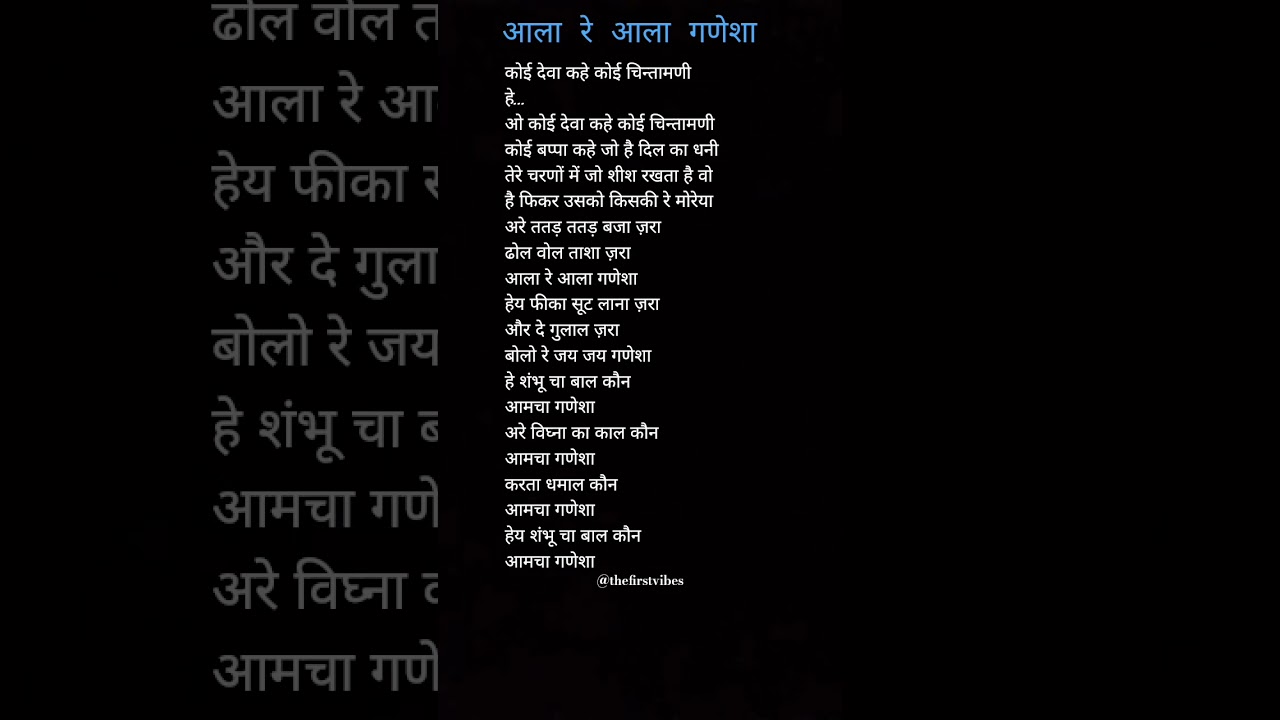 आला रे आला गणेशा
कोई देवा कहे कोई चिन्तामणी
हे...
ओ कोई देवा कहे कोई चिन्तामणी
कोई बप्पा कहे जो है दिल का धनी
तेरे चरणों में जो शीश रखता है वो
है फिकर उसको किसकी रे मोरेया
अरे ततड़ ततड़ बजा ज़रा
ढोल वोल ताशा ज़रा
आला रे आला गणेशा
हेय फीका सूट लाना ज़रा
और दे गुलाल ज़रा
बोलो रे जय जय गणेशा
हे शंभू चा बाल कौन
आमचा गणेशा
अरे विघ्ना का काल कौन
आमचा गणेशा
करता धमाल कौन
आमचा गणेशा
हेय शंभू चा बाल कौन
आमचा गणेशा
@thefirstvibes
ढोल वोल
आला रे
हेय फीका
और दे
बोलो रे जय
हे शंभू चा
आमचा
अरे विघ्ना
आमचा